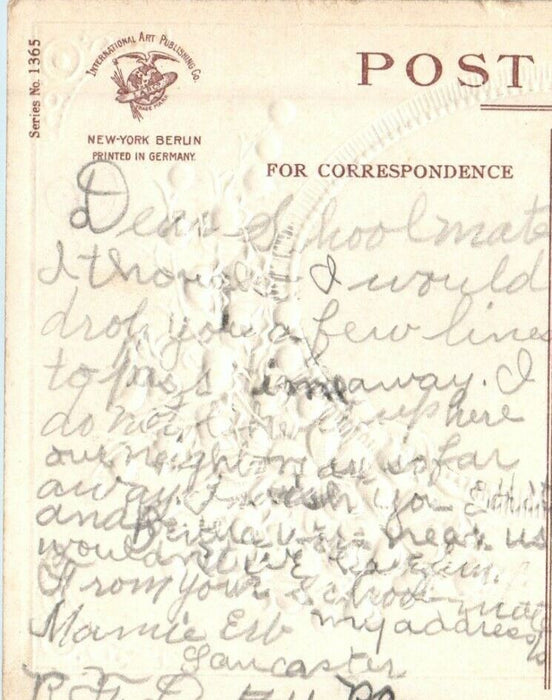 Series No. 1365
INTERNATIONAL ART PUBLISHING Co.
TRADE MARK
NEW-YORK BERLIN
PRINTED IN GERMANY.
POST
FOR CORRESPONDENCE
Dear Schoolmate
I thought I would
drop you a few lines
to pass time away. I
do not up here
our neighbors are so far
away. I wish you
and were near us
wouldn't we
From your School mate
Mamie Erb my address
Lancaster
R. F. D.